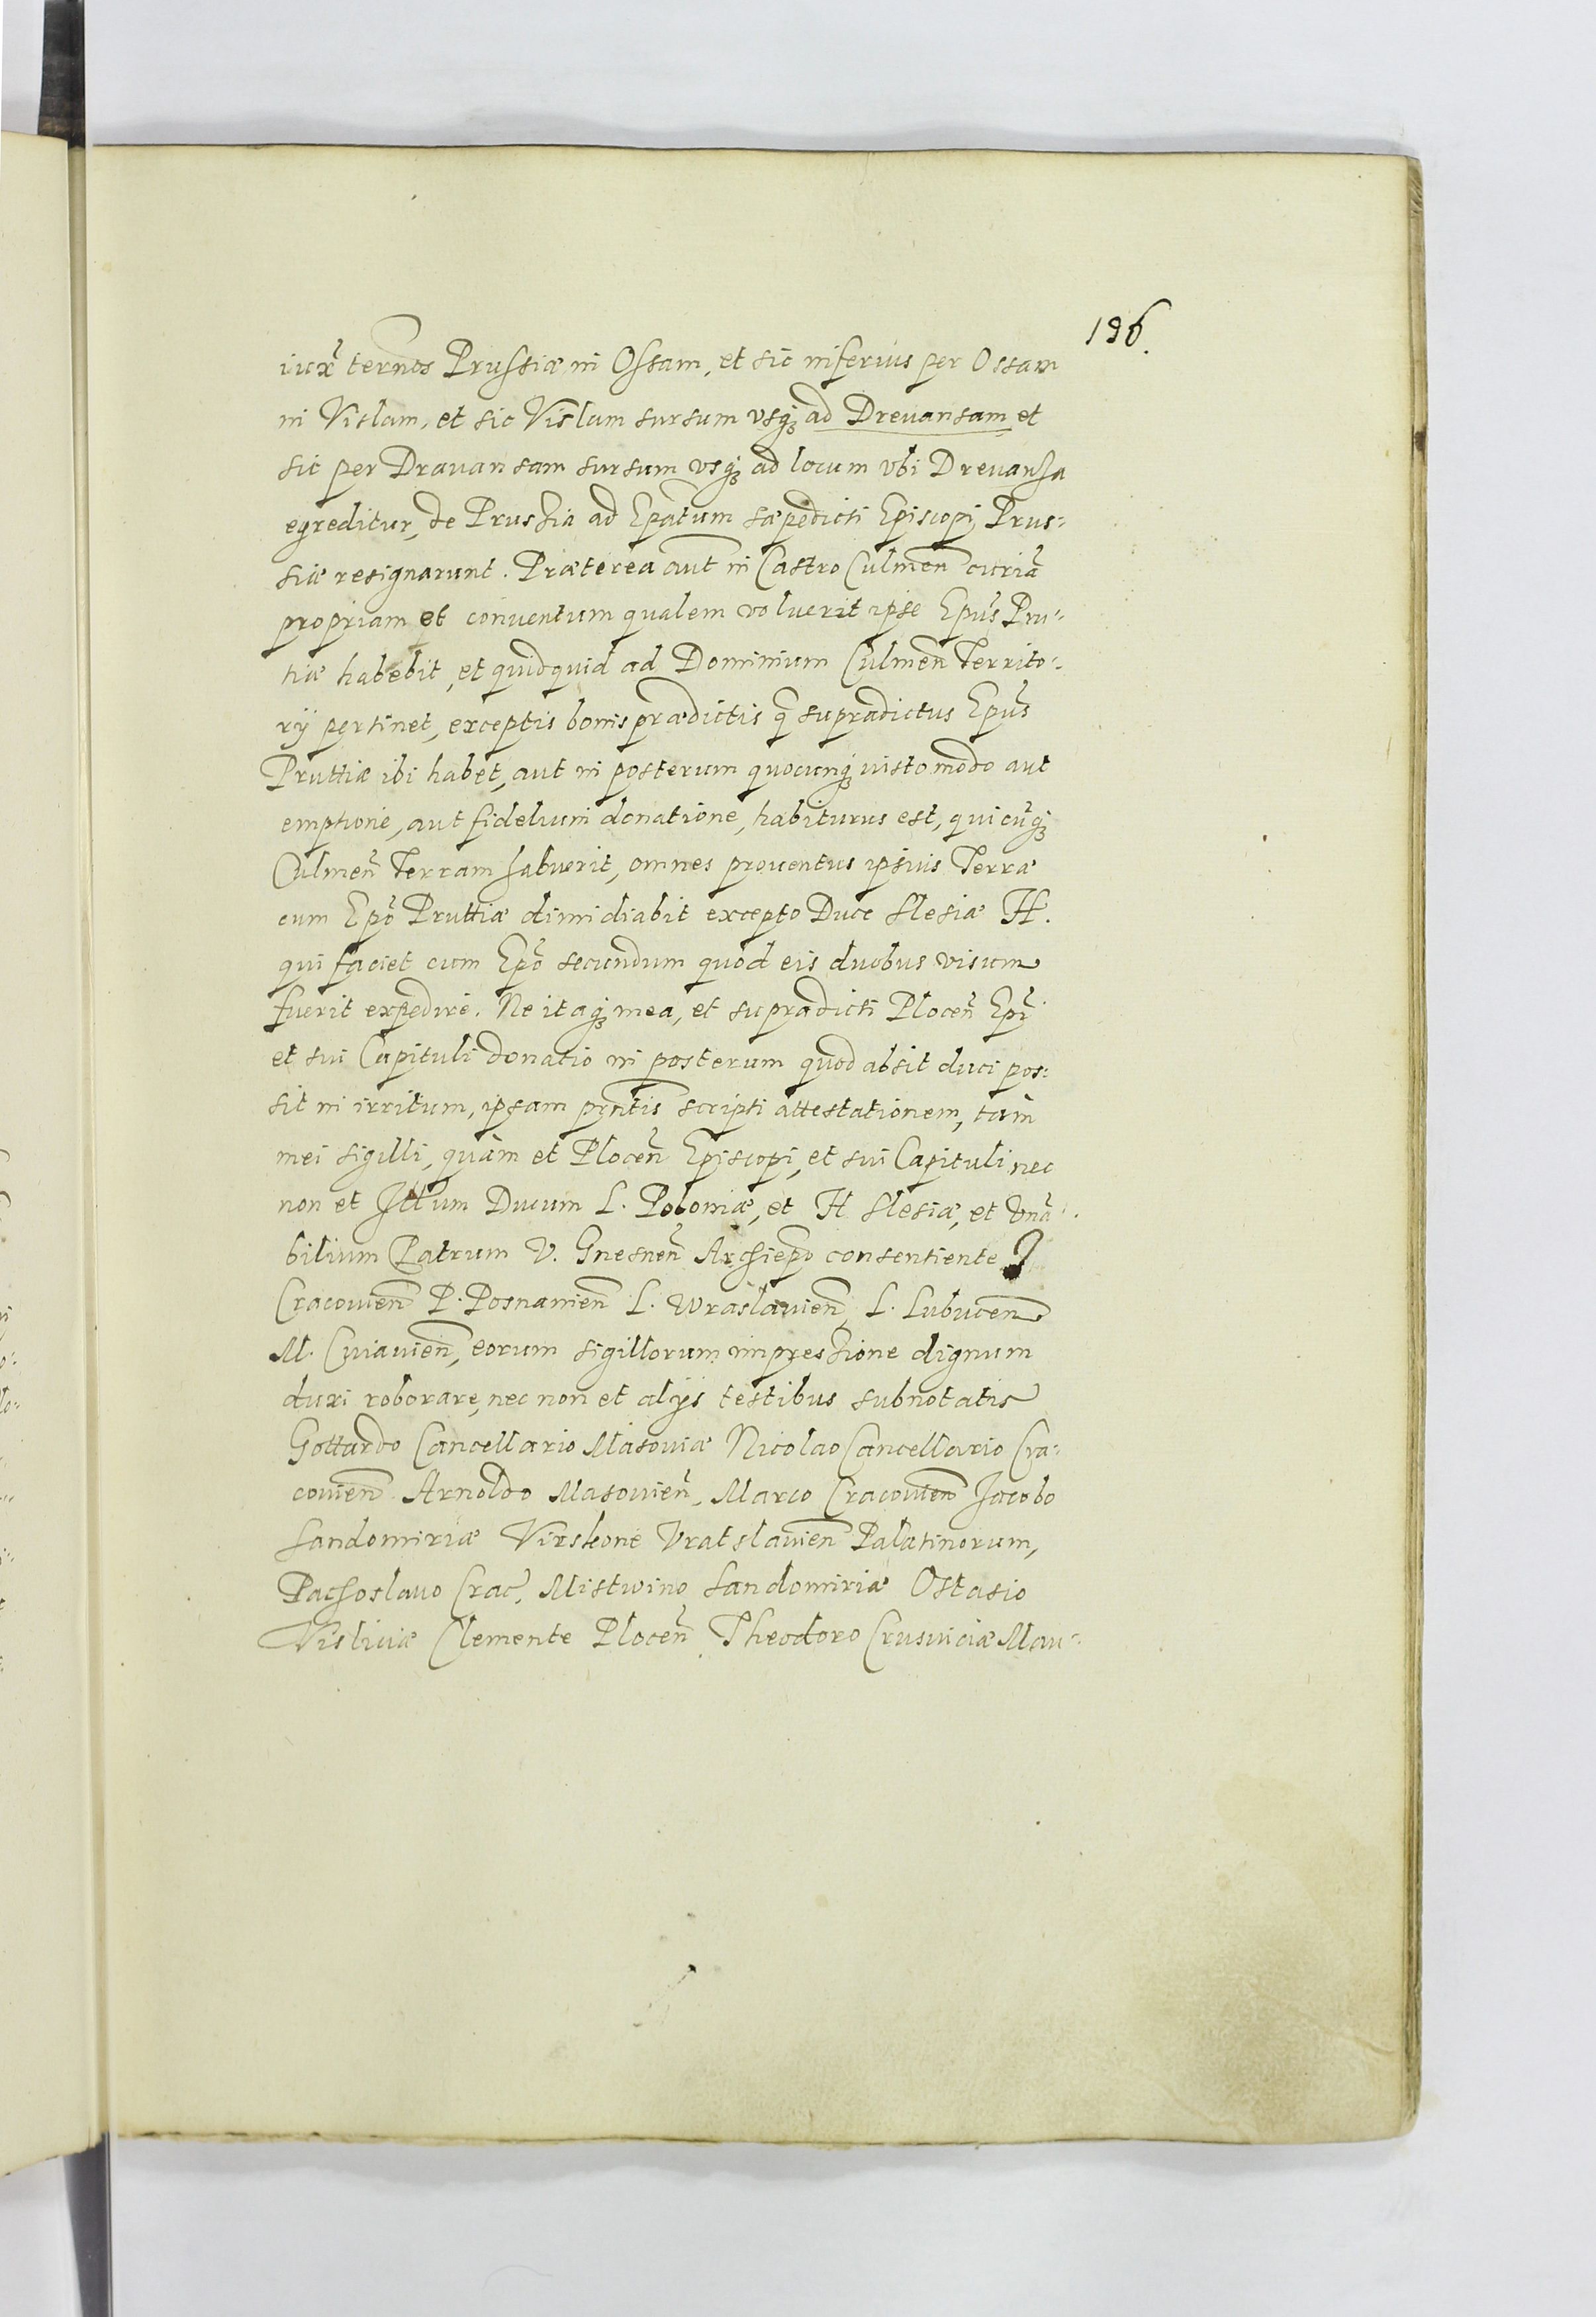 196.
iuxᷓ ternos Prussiæ in Ossam, et sic inferius per Ossam
in Vislam, et sic Vislam sursum usq; ad Drevansam et
sic per Dravansam sursum usq; ad locum ubi Drevansa
egreditur, de Prussia ad Epatum sæpedicti Episcopi Prus:
siæ resignarunt. Præterea aut in Castro Culmeñ curiã
propriam et conventum qualem voluerit ipse Epũs Pru:
tiæ habebit, et quidquid ad Dominium Culmeñ Territo:
rij pertinet, exceptis bonis prædictis q̃ supradictus Epũs
Pruttiæ ibi habet, aut in posterum quocunq; iusto modo aut
emptione, aut fidelium donatione, habiturus est, quicũq;
Culmeñ Terram habuerit, omnes proventus ipsius Terræ
cum Epõ Pruttiæ dimidiabit excepto Duce Slesiæ H.
qui faciet cum Epõ secundum quod eis duobus visum
fuerit expedire. Ne itaq; mea, et supradicti Ploceñ Epĩ
et sui Capituli donatio in posterum quod absit duci pos:
sit in irritum, ipsam pr̃ntis scripti attestationem, tam
mei sigilli, quàm et Ploceñ Episcopi, et sui Capituli nec
non et Illum Ducum L. Poloniæ, et H Slesiæ, et Vñã:
bilium Patrum V. Gnesneñ Archiepo consentiente J
Cracovieñ P. Posnanieñ L. Wraslavieñ, L. Lubuceñ
M. Cuiavieñ, eorum sigillorum impressione dignum
duxi roborare, nec non et alijs testibus subnotatis
Gottardo Cancellario Masoviæ Nicolao Cancellario Cra:
covieñ Arnoldo Masovieñ, Marco Cracovieñ Jacobo
Sandomiriæ Virskone Vratslavieñ Palatinorum,
Pachoslavo Crac, Mistwino Sandomiriæ Ostasio
Visliciæ Clemente Ploceñ, Theodoro Crusviciæ Mau: